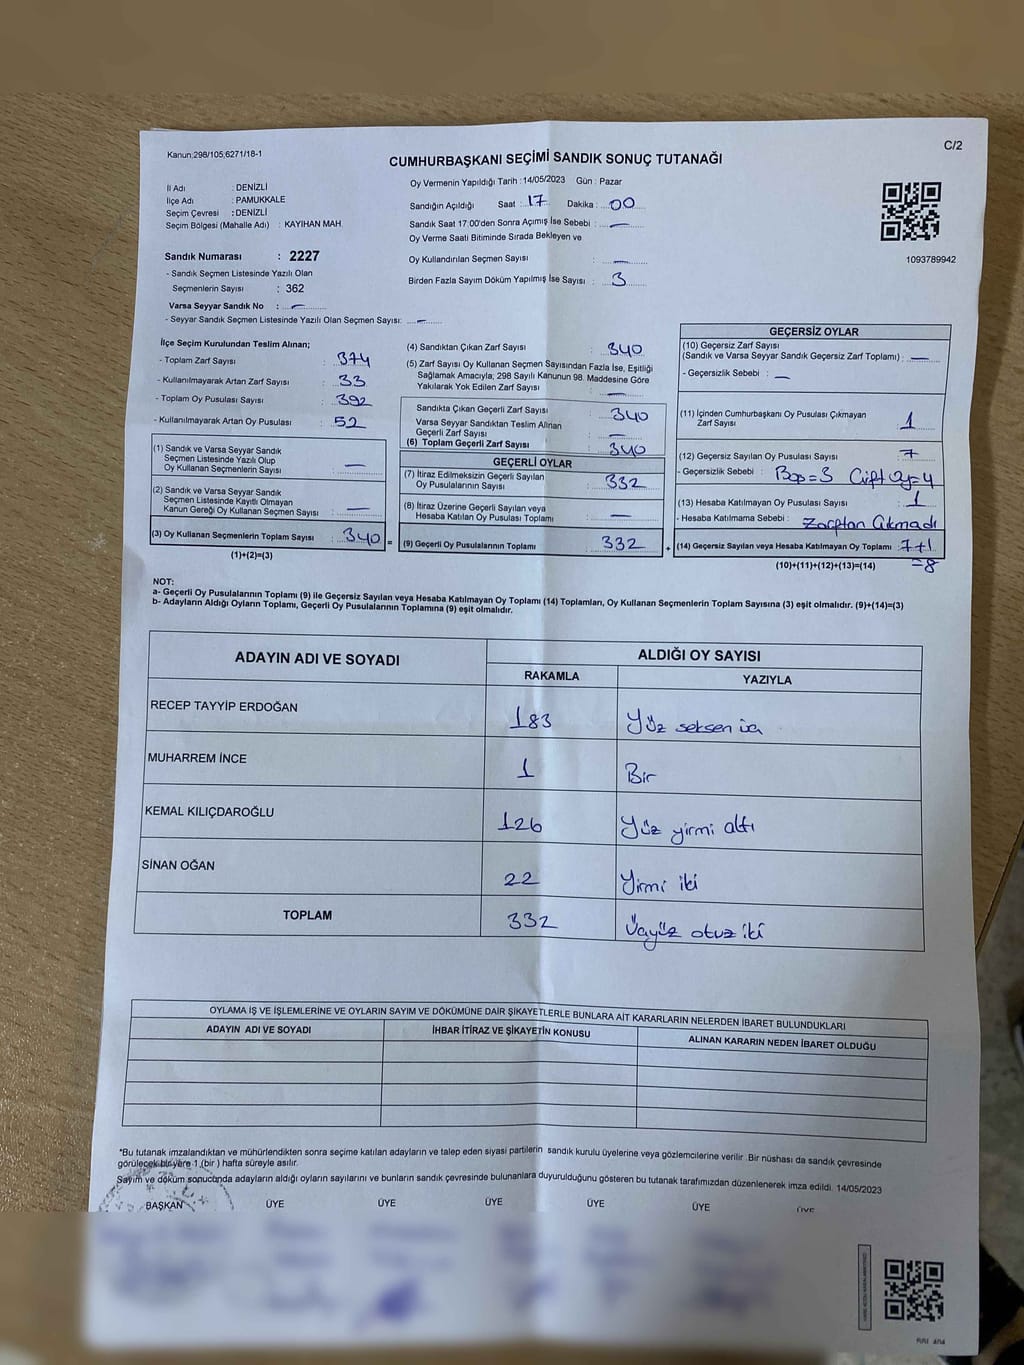 Kanun:298/105;6271/18-1
C/2
CUMHURBAŞKANI SEÇİMİ SANDIK SONUÇ TUTANAĞI
İl Adı : DENİZLİ
İlçe Adı : PAMUKKALE
Seçim Çevresi : DENİZLİ
Seçim Bölgesi (Mahalle Adı) : KAYIHAN MAH
Oy Vermenin Yapıldığı Tarih : 14/05/2023 Gün : Pazar
Sandığın Açıldığı Saat : 17 Dakika : 00
Sandık Saat 17:00'den Sonra Açımış İse Sebebi : —
Oy Verme Saati Bitiminde Sırada Bekleyen ve
Oy Kullandırılan Seçmen Sayısı : —
Birden Fazla Sayım Döküm Yapılmış İse Sayısı : 3
1093789942
Sandık Numarası : 2227
- Sandık Seçmen Listesinde Yazılı Olan
Seçmenlerin Sayısı : 362
Varsa Seyyar Sandık No : —
- Seyyar Sandık Seçmen Listesinde Yazılı Olan Seçmen Sayısı: —
İlçe Seçim Kurulundan Teslim Alınan;
- Toplam Zarf Sayısı : 374
- Kullanılmayarak Artan Zarf Sayısı : 33
- Toplam Oy Pusulası Sayısı : 392
- Kullanılmayarak Artan Oy Pusulası : 52
(1) Sandık ve Varsa Seyyar Sandık
Seçmen Listesinde Yazılı Olup
Oy Kullanan Seçmenlerin Sayısı : —
(2) Sandık ve Varsa Seyyar Sandık
Seçmen Listesinde Kayıtlı Olmayan
Kanun Gereği Oy Kullanan Seçmen Sayısı : —
(3) Oy Kullanan Seçmenlerin Toplam Sayısı : 340 =
(1)+(2)=(3)
(4) Sandıktan Çıkan Zarf Sayısı : 340
(5) Zarf Sayısı Oy Kullanan Seçmen Sayısından Fazla İse, Eşitliği
Sağlamak Amacıyla; 298 Sayılı Kanunun 98. Maddesine Göre
Yakılarak Yok Edilen Zarf Sayısı : —
Sandıkta Çıkan Geçerli Zarf Sayısı : 340
Varsa Seyyar Sandıktan Teslim Alınan
Geçerli Zarf Sayısı : —
(6) Toplam Geçerli Zarf Sayısı : 340
GEÇERLİ OYLAR
(7) İtiraz Edilmeksizin Geçerli Sayılan
Oy Pusulalarının Sayısı : 332
(8) İtiraz Üzerine Geçerli Sayılan veya
Hesaba Katılan Oy Pusulası Toplamı : —
(9) Geçerli Oy Pusulalarının Toplamı : 332 +
GEÇERSİZ OYLAR
(10) Geçersiz Zarf Sayısı
(Sandık ve Varsa Seyyar Sandık Geçersiz Zarf Toplamı) : —
- Geçersizlik Sebebi : —
(11) İçinden Cumhurbaşkanı Oy Pusulası Çıkmayan
Zarf Sayısı : 1
(12) Geçersiz Sayılan Oy Pusulası Sayısı : 7
- Geçersizlik Sebebi : Boş=3 Çift Oy=4
(13) Hesaba Katılmayan Oy Pusulası Sayısı : 1
- Hesaba Katılmama Sebebi : Zarftan Çıkmadı
(14) Geçersiz Sayılan veya Hesaba Katılmayan Oy Toplamı : 7+1
=8
(10)+(11)+(12)+(13)=(14)
NOT:
a- Geçerli Oy Pusulalarının Toplamı (9) ile Geçersiz Sayılan veya Hesaba Katılmayan Oy Toplamı (14) Toplamları, Oy Kullanan Seçmenlerin Toplam Sayısına (3) eşit olmalıdır. (9)+(14)=(3)
b- Adayların Aldığı Oyların Toplamı, Geçerli Oy Pusulalarının Toplamına (9) eşit olmalıdır.
ADAYIN ADI VE SOYADI
ALDIĞI OY SAYISI
RAKAMLA YAZIYLA
RECEP TAYYİP ERDOĞAN 183 Yüz seksen üç
MUHARREM İNCE 1 Bir
KEMAL KILIÇDAROĞLU 126 Yüz yirmi altı
SİNAN OĞAN 22 Yirmi iki
TOPLAM 332 Üçyüz otuz iki
OYLAMA İŞ VE İŞLEMLERİNE VE OYLARIN SAYIM VE DÖKÜMÜNE DAİR ŞİKAYETLERLE BUNLARA AİT KARARLARIN NELERDEN İBARET BULUNDUKLARI
ADAYIN ADI VE SOYADI İHBAR İTİRAZ VE ŞİKAYETİN KONUSU ALINAN KARARIN NEDEN İBARET OLDUĞU
*Bu tutanak imzalandıktan ve mühürlendikten sonra seçime katılan adayların ve talep eden siyasi partilerin sandık kurulu üyelerine veya gözlemcilerine verilir. Bir nüshası da sandık çevresinde
görülecek bir yere 1 (bir ) hafta süreyle asılır.
Sayım ve döküm sonucunda adayların aldığı oyların sayılarını ve bunların sandık çevresinde bulunanlara duyurulduğunu gösteren bu tutanak tarafımızdan düzenlenerek imza edildi. 14/05/2023
BAŞKAN ÜYE ÜYE ÜYE ÜYE ÜYE ÜYE